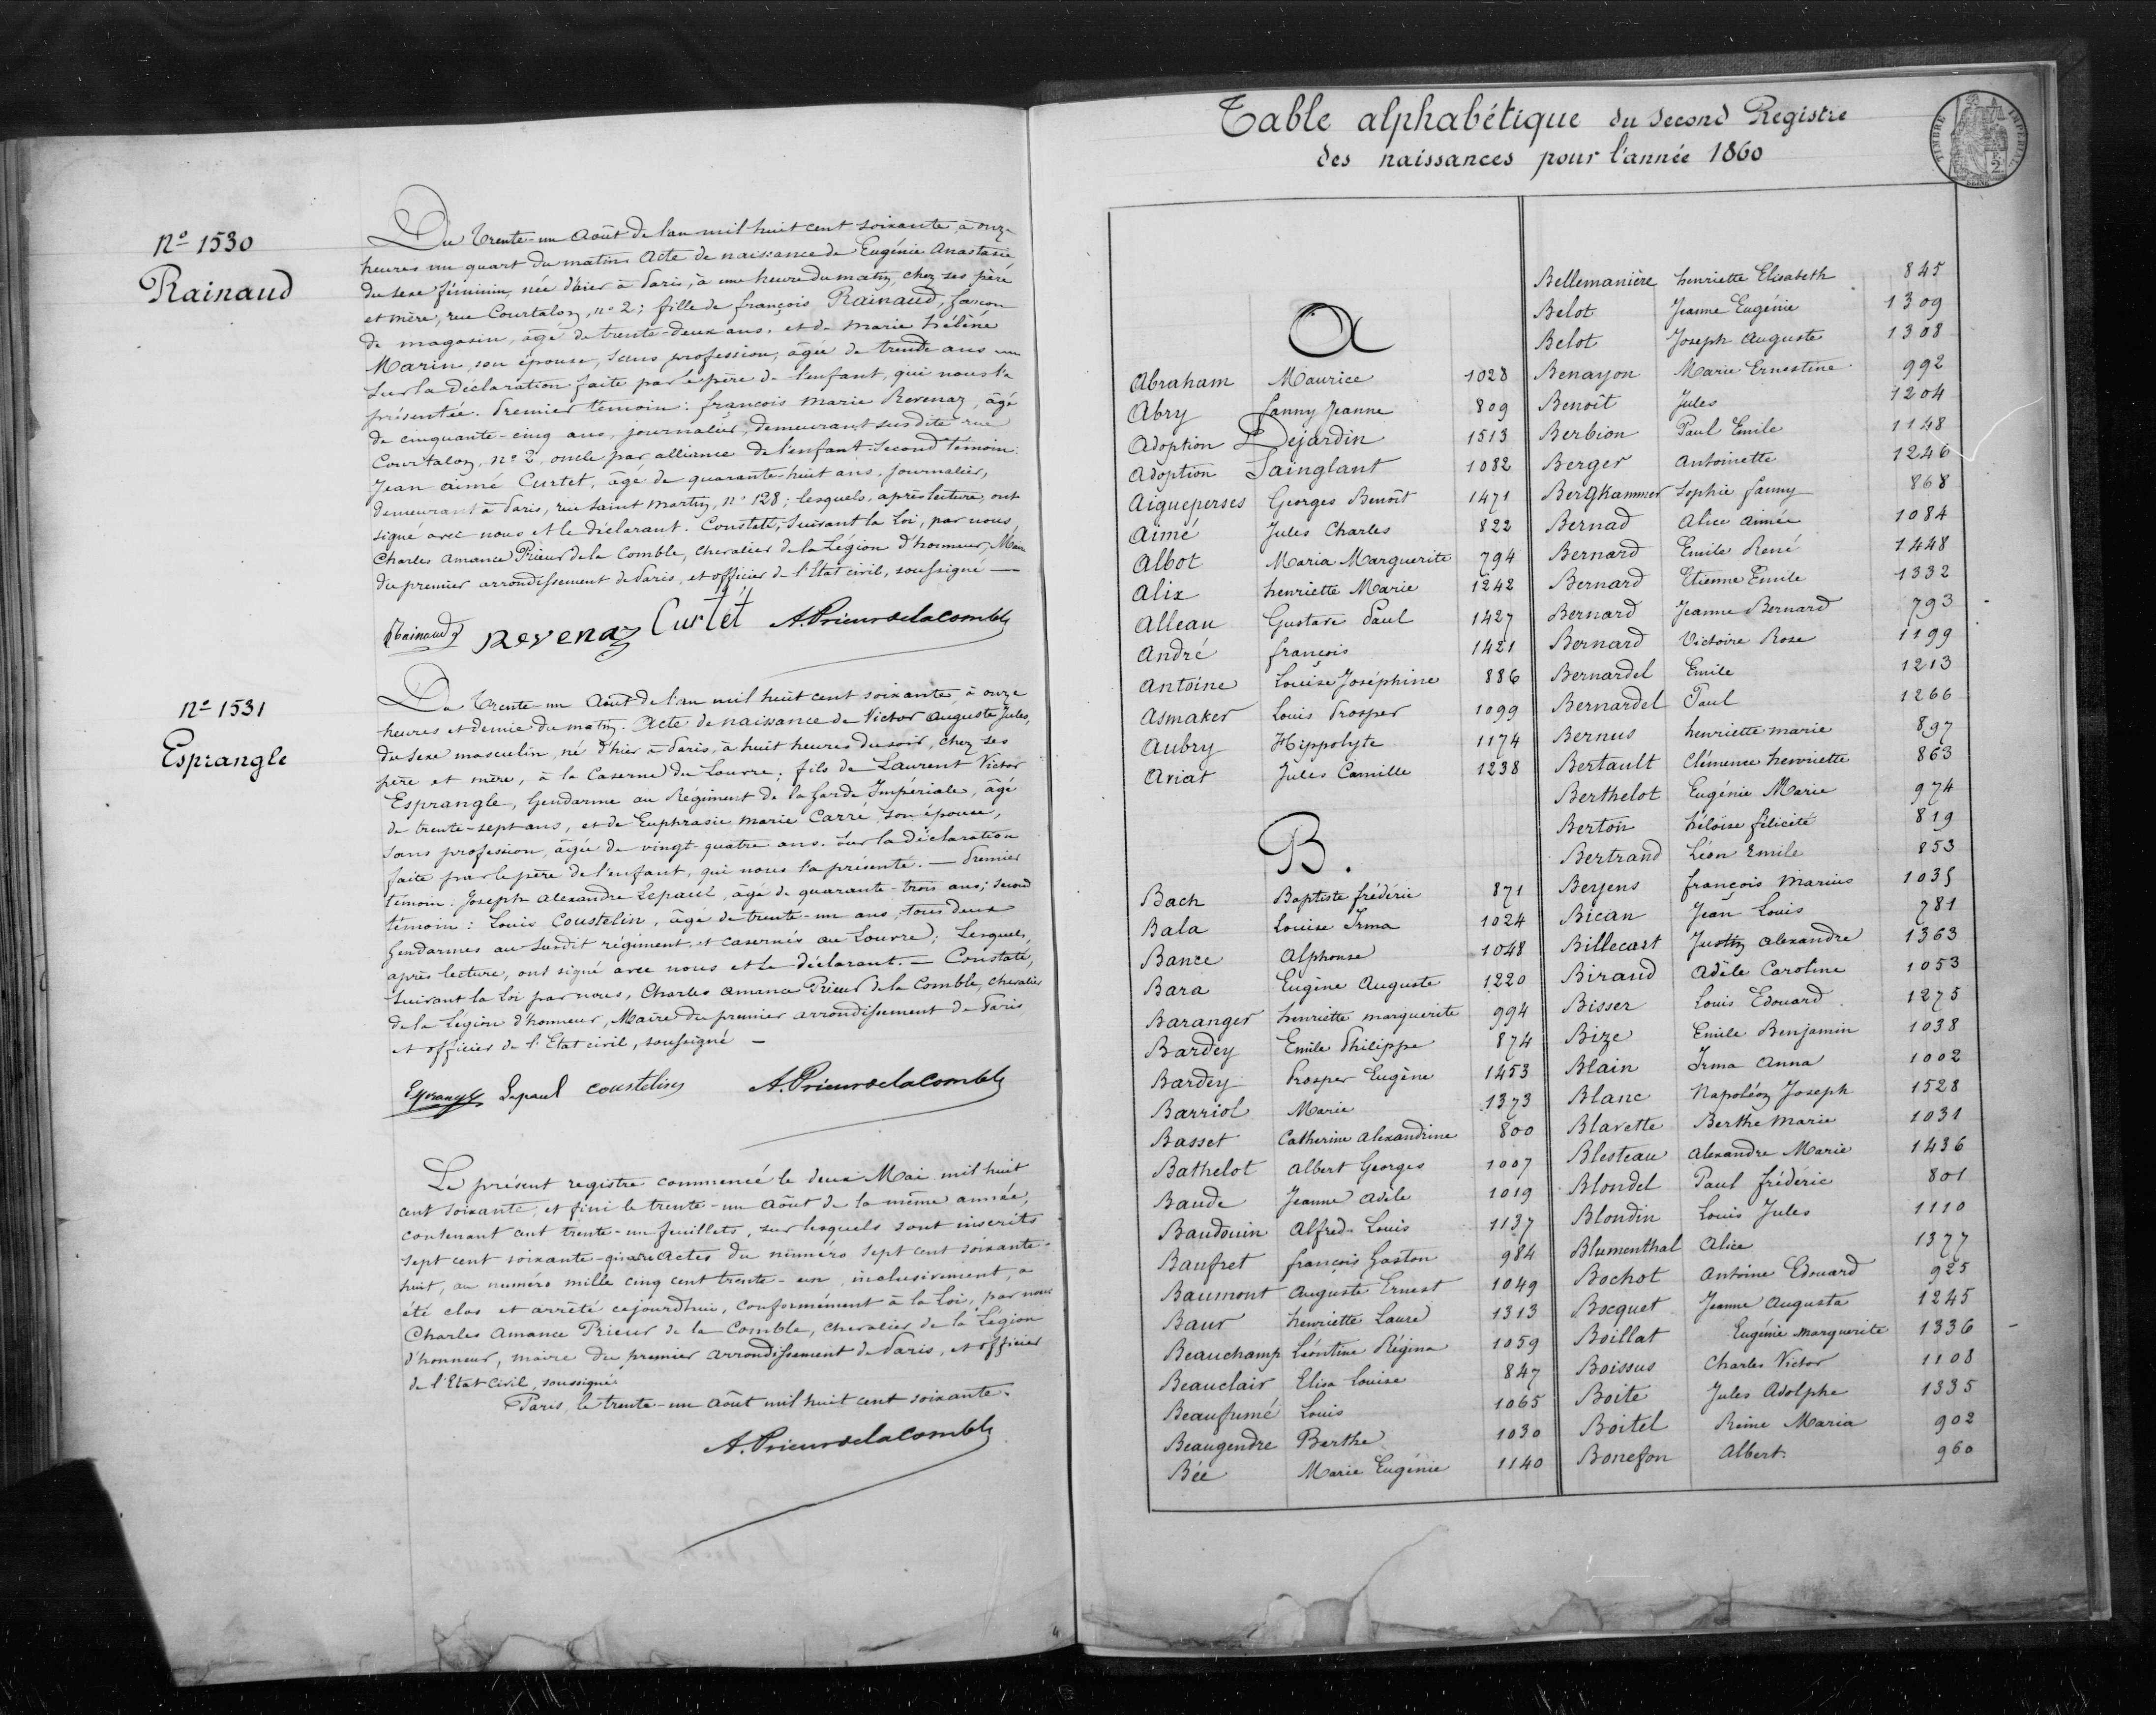 Nº 1530
Rainaud
Du Trente-un Août de l'an mil huit cent soixante, à onze
heures un quart du matin. Acte de naissance de Eugénie Anastasie,
du sexe féminin, née d'hier à Paris, à une heure du matin, chez ses père
et mère, rue Courtalon, nº 2; fille de françois Rainaud, garçon
de magasin, âgé de trente-deux ans, et de marie hélène
Marin, son épouse, sans profession, âgée de trente ans
Sur la déclaration faite par le père de l'enfant, qui nous l'a
présentée. Premier témoin: françois marie Revenaz, âgé
de cinquante-cinq ans, journalier, demeurant susdite rue
Courtalon, nº 2, oncle par alliance de l'enfant. Second témoin:
Jean aimé Curtet, âgé de quarante-huit ans, journalier,
demeurant à Paris, rue Saint Martin, nº 128; lesquels, après lecture, ont
signé avec nous et le déclarant. Constaté, suivant la Loi, par nous,
Charles Amance Prieur de la Comble, chevalier de la Légion d'honneur, Maire
du premier arrondissement de Paris, et officier de l'Etat civil, soussigné —
Rainaud Revenaz Curtet A. Prieur de la Comble
Nº 1531
Esprangle
Du Trente-un Août de l'an mil huit cent soixante, à onze
heures et demie du matin. Acte de naissance de Victor Auguste Jules,
du sexe masculin, né d'hier à Paris, à huit heures du soir, chez ses
père et mère, à la Caserne du Louvre; fils de Laurent Victor
Esprangle, Gendarme au Régiment de la Garde Impériale, âgé
de trente-sept ans, et de Euphrasie marie Carré, son épouse,
sans profession, âgée de vingt-quatre ans. Sur la déclaration
faite par le père de l'enfant, qui nous l'a présenté. — Premier
témoin: Joseph Alexandre Lepaul, âgé de quarante-trois ans; second
témoin: Louis Coustelin, âgé de trente-un ans, tous deux
Gendarmes au susdit régiment, et casernés au Louvre; Lesquels,
après lecture, ont signé avec nous et le déclarant. — Constaté,
suivant la Loi par nous, Charles Amance Prieur de la Comble, chevalier
de la Légion d'honneur, Maire du premier arrondissement de Paris
et officier de l'Etat civil, soussigné —
Esprangle Lepaul Coustelin A. Prieur de la Comble
Le présent registre commencé le deux Mai mil huit
cent soixante, et fini le trente-un Août de la même année,
contenant cent trente-un feuillets, sur lesquels sont inscrits
sept cent soixante-quatre Actes du numéro sept cent soixante-
huit, au numéro mille cinq cent trente-un, inclusivement, a
été clos et arrêté cejourd'hui, conformément à la Loi, par nous
Charles Amance Prieur de la Comble, chevalier de la Légion
d'honneur, maire du premier arrondissement de Paris, et officier
de l'Etat Civil, soussigné
Paris, le trente-un Août mil huit cent soixante.
A. Prieur de la Comble
Table alphabétique du second Registre
des naissances pour l'année 1860
TIMBRE IMPERIAL
SEINE
A
Abraham Maurice 1028
Abry fanny Jeanne 809
Adoption Dejardin 1513
Adoption Sainglant 1082
Aigueperses Georges Benoît 1471
Aimé Jules Charles 822
Albot Maria Marguerite 794
Alix henriette Marie 1242
Alleau Gustave Paul 1427
André françois 1421
Antoine Louise Joséphine 886
Asmaker Louis Prosper 1099
Aubry Hippolyte 1174
Aviat Jules Camille 1238
B.
Bach Baptiste frédéric 871
Bala Louise Irma 1024
Bance Alphonse 1048
Bara Eugène Auguste 1220
Baranger henriette marguerite 994
Bardey Emile Philippe 874
Bardey Prosper Eugène 1453
Barriol Marie 1373
Basset Catherine Alexandrine 800
Bathelot Albert Georges 1007
Baude Jeanne Adèle 1019
Baudouin Alfred Louis 1137
Baufret françois Gaston 984
Baumont Auguste Ernest 1049
Baur henriette Laure 1313
Beauchamp Léontine Régina 1059
Beauclair Elisa Louise 847
Beaufumé Louis 1065
Beaugendre Berthe 1030
Bée Marie Eugénie 1140
Bellemanière henriette Elisabeth 845
Belot Jeanne Eugénie 1309
Belot Joseph Auguste 1308
Benayon Marie Ernestine 992
Benoît Jules 1204
Berbion Paul Emile 1148
Berger Antoinette 1246
Bergkammer Sophie fanny 868
Bernad Alice Aimée 1084
Bernard Emile René 1448
Bernard Etienne Emile 1332
Bernard Jeanne Bernard 793
Bernard Victoire Rose 1199
Bernardel Emile 1213
Bernardel Paul 1266
Bernus henriette marie 897
Bertault Clémence henriette 863
Berthelot Eugénie Marie 974
Berton héloïse félicité 819
Bertrand Léon Emile 853
Beyens françois Marius 1035
Bican Jean Louis 781
Billecast Justin Alexandre 1363
Biraud Adèle Caroline 1053
Bisser Louis Edouard 1275
Bize Emile Benjamin 1038
Blain Irma Anna 1002
Blanc Napoléon Joseph 1528
Blavette Berthe Marie 1031
Blesteau Alexandre Marie 1436
Blondel Paul frédéric 801
Blondin Louis Jules 1110
Blumenthal Alice 1377
Bochot Antoine Edouard 925
Bocquet Jeanne Augusta 1245
Boillat Eugénie Marguerite 1336
Boissus Charles Victor 1108
Boite Jules Adolphe 1335
Boitel Reine Maria 902
Bonefon Albert 960